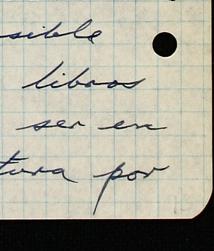 sible
libros
ser en
tura por